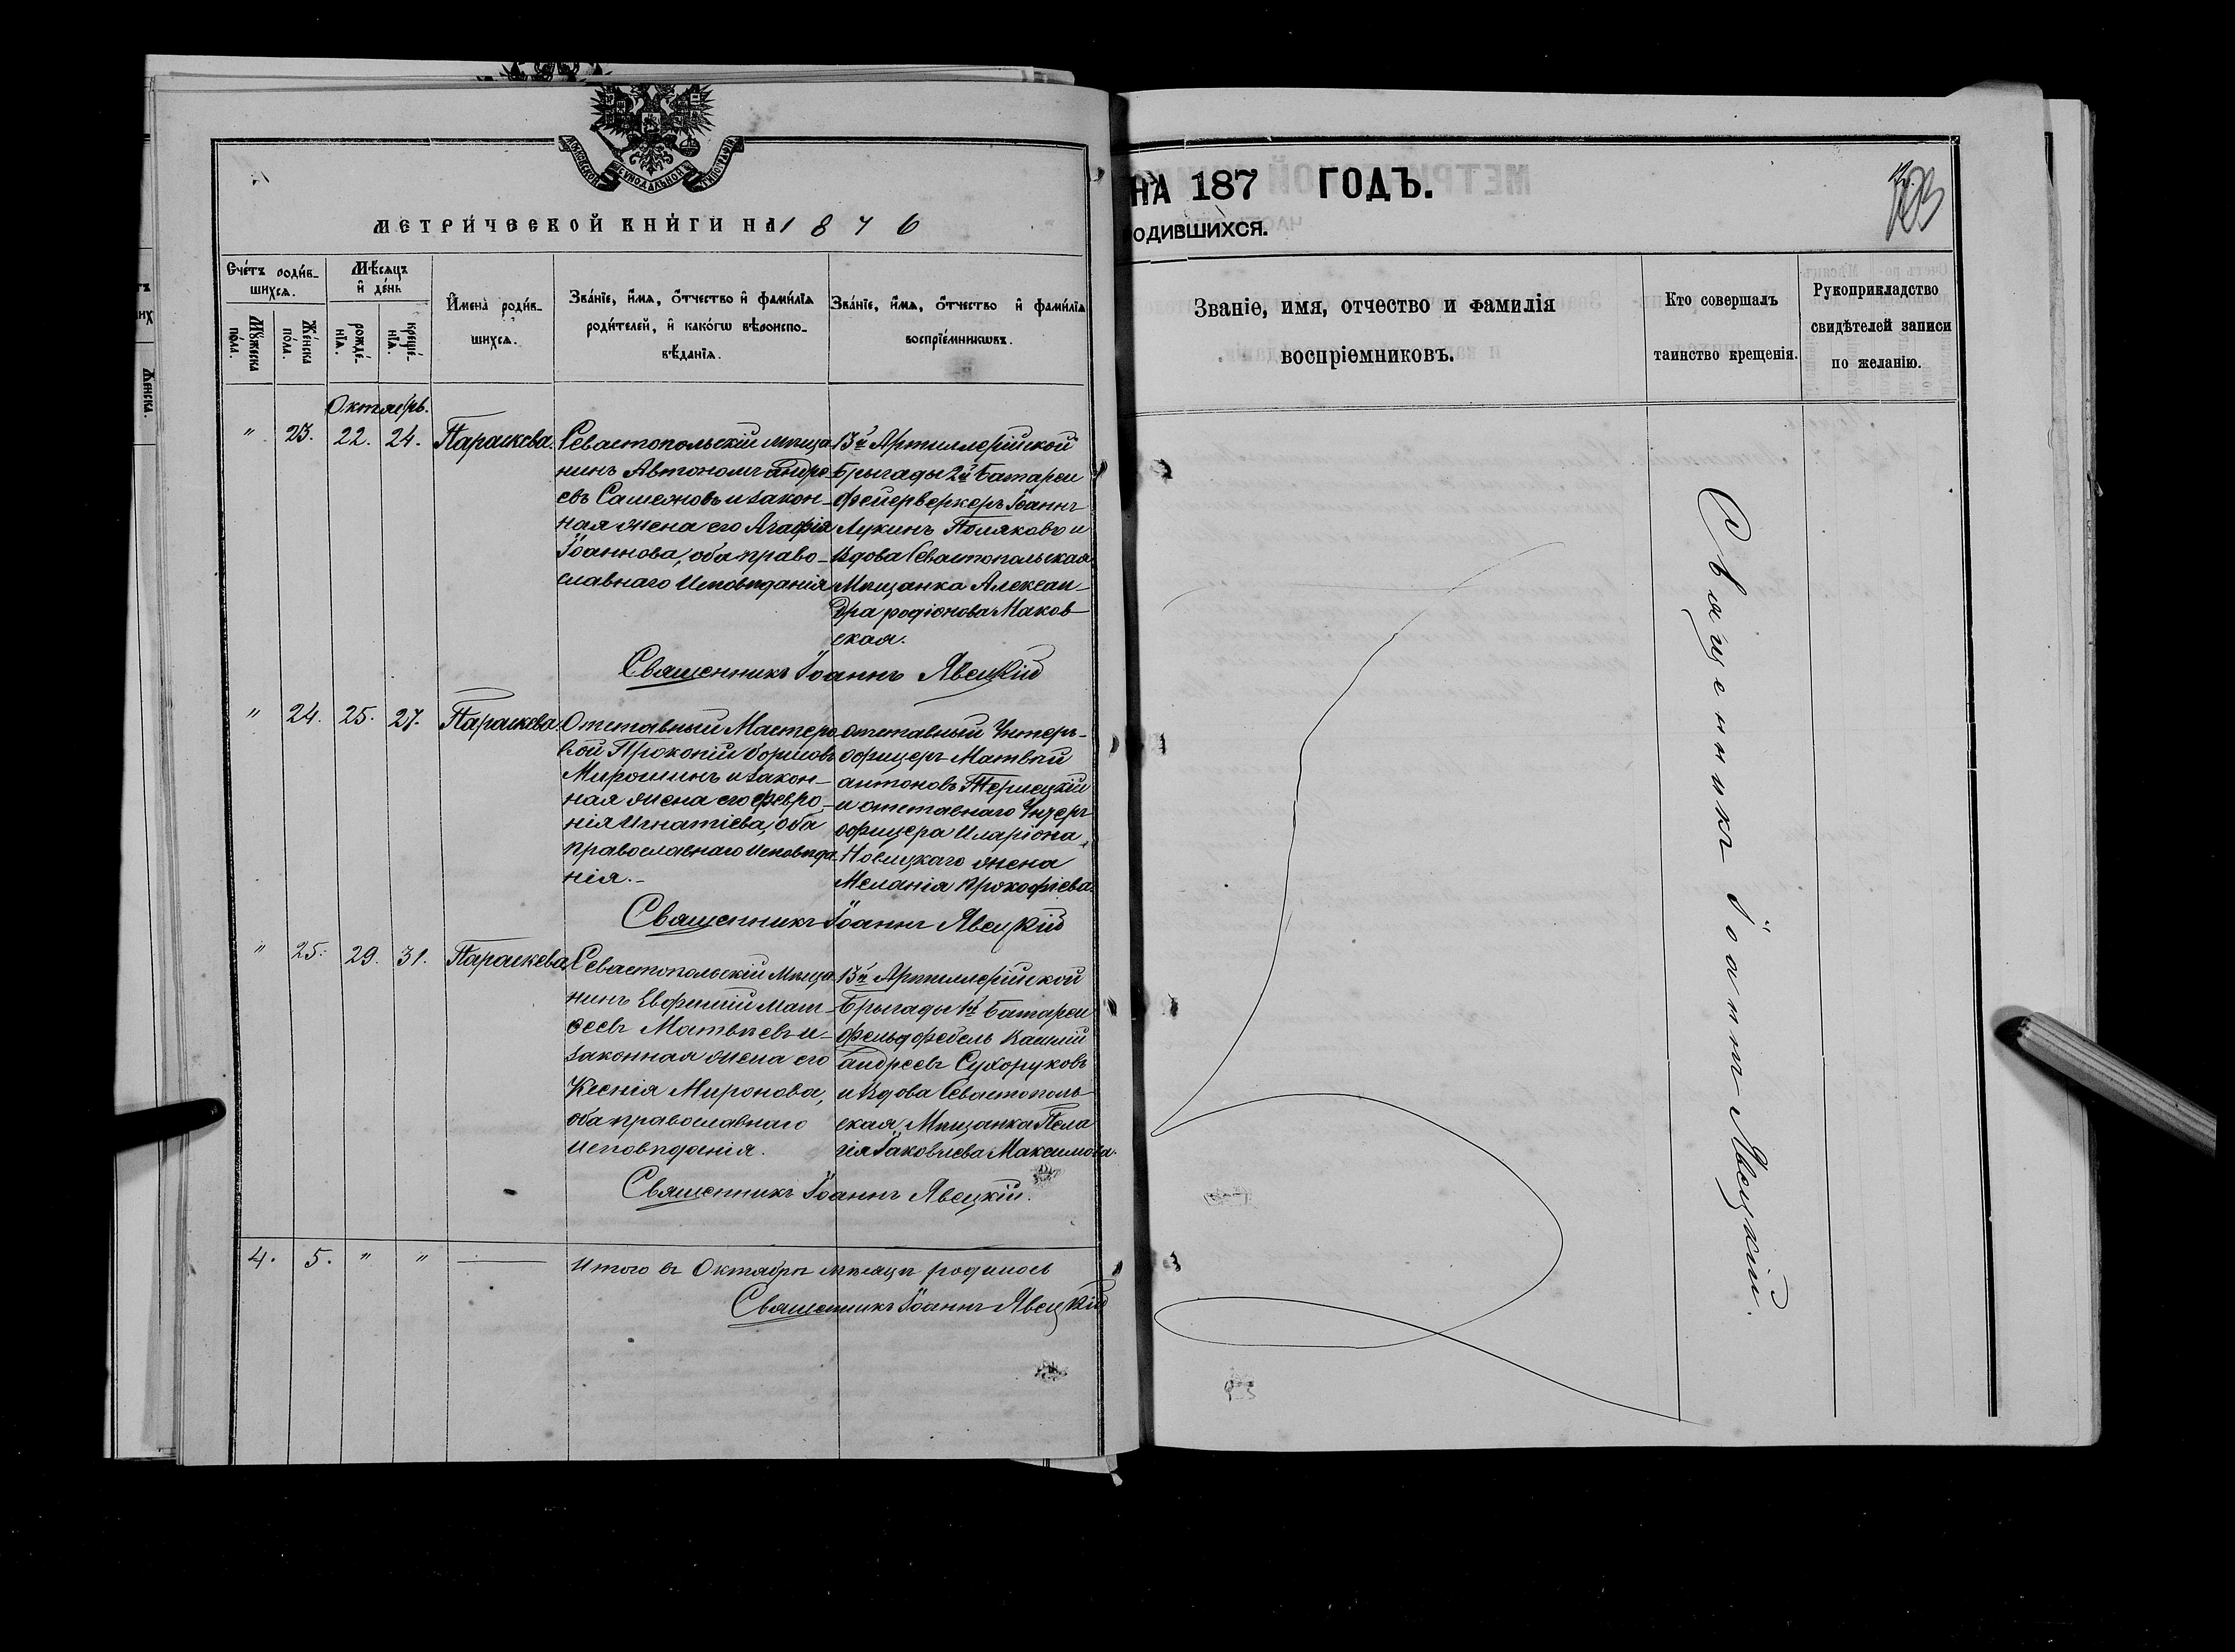 МОСКОВСКОЙ СѴНОДАЛЬНОЙ ТИПОГРАФІИ
МЕТРИ́ЧЕСКОЙ КНИ́ГИ НА 1876
Сче́тъ роди́в-
шихсѧ.
Мѣ́сѧцъ
и҆ де́нь
Мꙋ́жеска
по́ла.
Же́нска
по́ла.
рожде́-
нїѧ.
креще́-
нїѧ.
И҆мена̀ роди́в-
шихсѧ.
Зва́нїе, и҆́мѧ, ѻ҆́тчество и҆ фами́лїѧ
роди́телей, и҆ како́гѡ вѣроиспо-
вѣ́данїѧ.
Зва́нїе, и҆́мѧ, ѻ҆́тчество и҆ фами́лїѧ
воспрїе́мникѡвъ.
Октябрь.
" 23. 22. 24. Параскева.
Севастопольскій мѣща-
нинъ Автономъ Андре-
евъ Сашеновъ и закон-
ная жена его Агафія
Іоаннова, оба право-
славнаго Исповѣданія
13й Артиллерійской
Бригады 2й Батареи
фейерверкеръ Іоаннъ
Лукинъ Поляковъ и
вдова Севастопольская
Мѣщанка Алексан-
дра родіонова Маков-
ская.
Священникъ Іоаннъ Явецкій
" 24. 25. 27. Параскева.
Отставный Мастеро-
вой Прокопій борисовъ
Мирошинъ и закон-
ная жена его Февро-
нія Игнатіева, оба
православнаго Исповѣда-
нія.-
отставный Унтеръ-
офицеръ Матвѣй
антоновъ Терлецкій
и отставнаго Унтеръ
офицера Иларіона
Новицкаго жена
Меланія Прокофіева.
Священникъ Іоаннъ Явецкій
" 25. 29. 31. Параскева.
Севастопольскій Мѣща-
нинъ Евфимій Мат-
ѳеевъ Матвѣевъ и
законная жена его
Ксенія Миронова,
оба православнаго
Исповѣданія.
13й Артиллерійской
Бригады 1й Батареи
фельдфебель
Андреевъ Сухоруковъ
и вдова Севастополь-
ская Мѣщанка Пела
гія Іаковлева Максимова.
Священникъ Іоаннъ Явецкій.
4. 5. " "
Итого въ Октябрѣ мѣсяцѣ родилось
Священникъ Іоаннъ Явецкій
НА 187 ГОДЪ.
ОДИВШИХСЯ.
Званіе, имя, отчество и фамилія
воспріемниковъ.
Кто совершалъ
таинство крещенія.
Рукоприкладство
свидѣтелей записи
по желанію.
Священникъ Іоаннъ Явецкій.